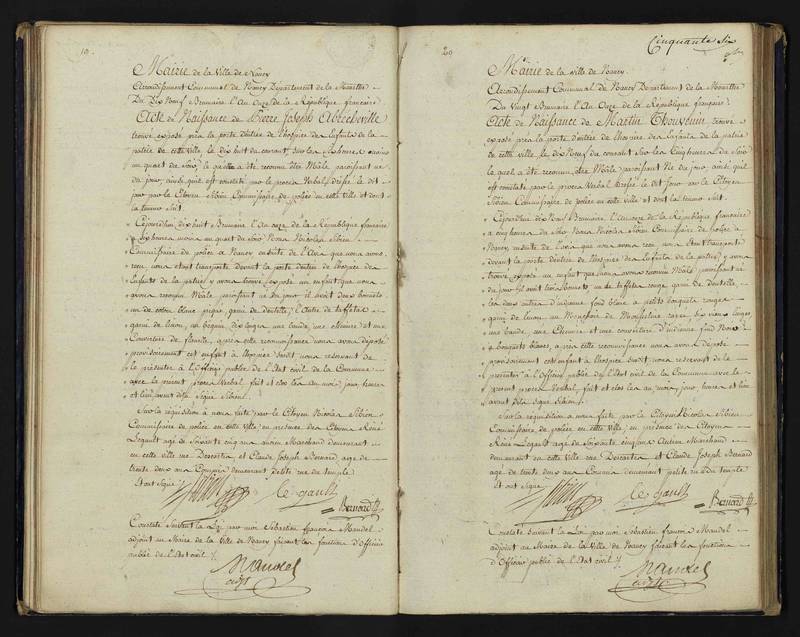 19.
Mairie de la Ville de Nancy
Arrondissement Communal de Nancy Département de la Meurthe
Du Dix Neuf Brumaire l'An Onze de la République française
Acte de Naissance de Pierre Joseph
trouvé exposé près la porte d'entrée de l'hospice des Enfants de la
patrie de cette ville, le dix huit du courant, sur les six heures moins
un quart du soir, lequel a été reconnu être Mâle paroissant né
du jour, ainsi qu'il est constaté par le procès Verbal dressé le dit
jour par le Citoyen Commissaire de police en cette ville et dont
la teneur suit
Cejourd'hui dix huit Brumaire l'An onze de la République française
à six heures moins un quart du soir Nous Nicolas
Commissaire de police à Nancy ensuite de l'avis que nous avons
reçu, nous étant transporté devant la porte d'entrée de l'hospice des
Enfants de la patrie, y avons trouvé exposé un enfant que nous
avons reconnu Mâle, paroissant né du jour il avoit deux bonnets
un de coton blanc piqué, garni de dentelle, l'Autre de taffetas
garni de linon, un beguin, six langes une bande, une Chemise et une
Couverture de flanelle, après cette reconnoissance nous avons déposé
provisoirement cet enfant à l'hospice susdit nous réservant de
le présenter à l'Officier public de l'Etat civil de la Commune
avec le présent procès Verbal, fait et clos les an mois, jour, heure
et lieu avant dits signé
Sur la réquisition à nous faite par le Citoyen Nicolas
Commissaire de police en cette Ville, en présence des Citoyens René
Legault agé de soixante cinq ans ancien Marchand demeurant
en cette ville rue Descartes et Claude Joseph Bernard, agé de
trente deux ans Commis demeurant petite rue du temple
Et ont signé
le gault
Bernard
Constaté Suivant la Loi par moi Sébastien françois Mandel
adjoint au Maire de la Ville de Nancy faisant les fonctions d'Officier
public de l'Etat civil
Mandel
adjt
Cinquante six
20
Mairie de la Ville de Nancy
Arrondissement Communal de Nancy Département de la Meurthe
Du Vingt Brumaire l'An Onze de la République française
Acte de Naissance de Martin Thouvenin trouvé
exposé près la porte d'entrée de l'hospice des Enfants de la patrie
de cette ville, le dix Neuf du courant sur les Cinq heures du Soir
lequel a été reconnu être Mâle paroissant Né du jour, ainsi qu'il
est constaté par le procès Verbal dressé le dit jour par le Citoyen
Commissaire de police en cette ville et dont la teneur suit.
Cejourd'hui dix Neuf Brumaire, l'An onze de la République française
à cinq heures du Soir Nous Nicolas Commissaire de police à
Nancy ensuite de l'avis que nous avons reçu nous étant transporté
devant la porte d'entrée de l'hospice des Enfants de la patrie, y avons
trouvé, exposé un enfant que nous avons reconnu Mâle, paroissant né
du jour, il avoit trois bonnets un de taffetas rouge garni de dentelle,
les deux autres d'indienne fond blanc à petits bouquets rouges
garni de linon, un Mouchoir de Mousseline rayée, six vieux langes,
une bande, une Chemise et une couverture d'indienne fond Noir à
bouquets blancs, après cette reconnoissance nous avons déposé
provisoirement cet enfant à l'hospice susdit, nous réservant de le
présenter à l'Officier public de l'Etat civil de la Commune avec le
présent procès Verbal, fait et clos les an mois, jour, heure et lieu
avant dits signé
Sur la réquisition à nous faite par le Citoyen Nicolas
Commissaire de police en cette ville, en présence des Citoyens
René Legault agé de soixante cinq ans Ancien Marchand
demeurant en cette Ville rue Descartes et Claude Joseph Bernard
agé de trente deux ans Commis demeurant petite rue du temple
Et ont signé
le gault
Bernard
Constaté Suivant la Loi par moi Sébastien françois Mandel
adjoint au Maire de la Ville de Nancy faisant les fonctions
d'Officier public de l'Etat civil
Mandel
adjt